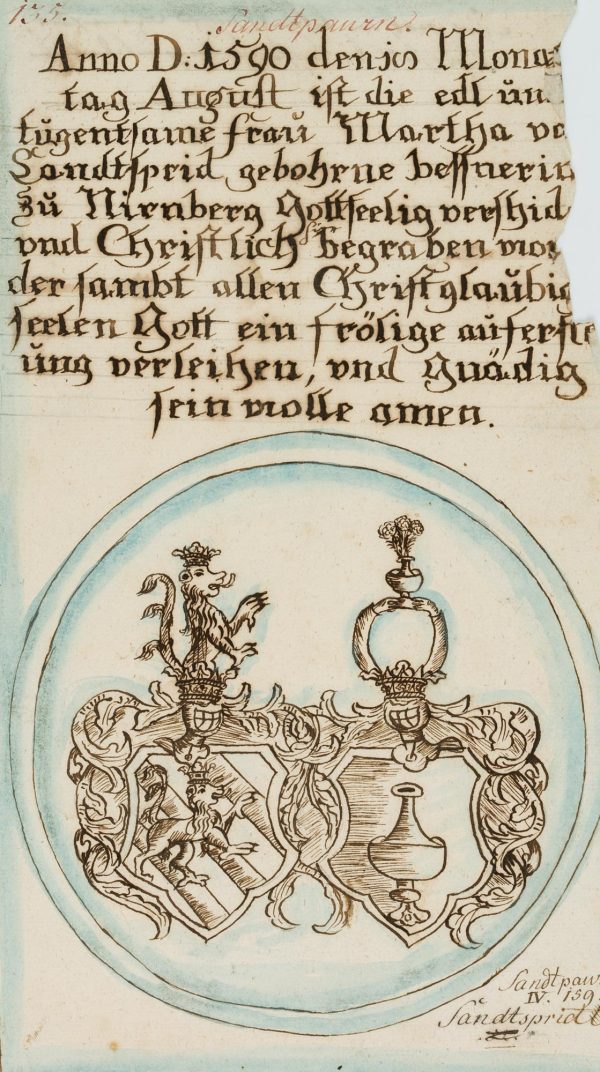 135.
Sandtpaurn.
Anno D: 1590 den 10 Monas
tag August ist die edl un
tugentsame frau Martha vo
Sandtsprid gebohrne bessnerin
zu Nirnberg Gottseelig vershid
vnd Christlich begraben wor
der sambt allen Christglaubig
seelen Gott ein frölige auferste
ung verleihen, vnd gnädig
sein wolle amen.
Sandtpau
IV. 159
Sandtsprid